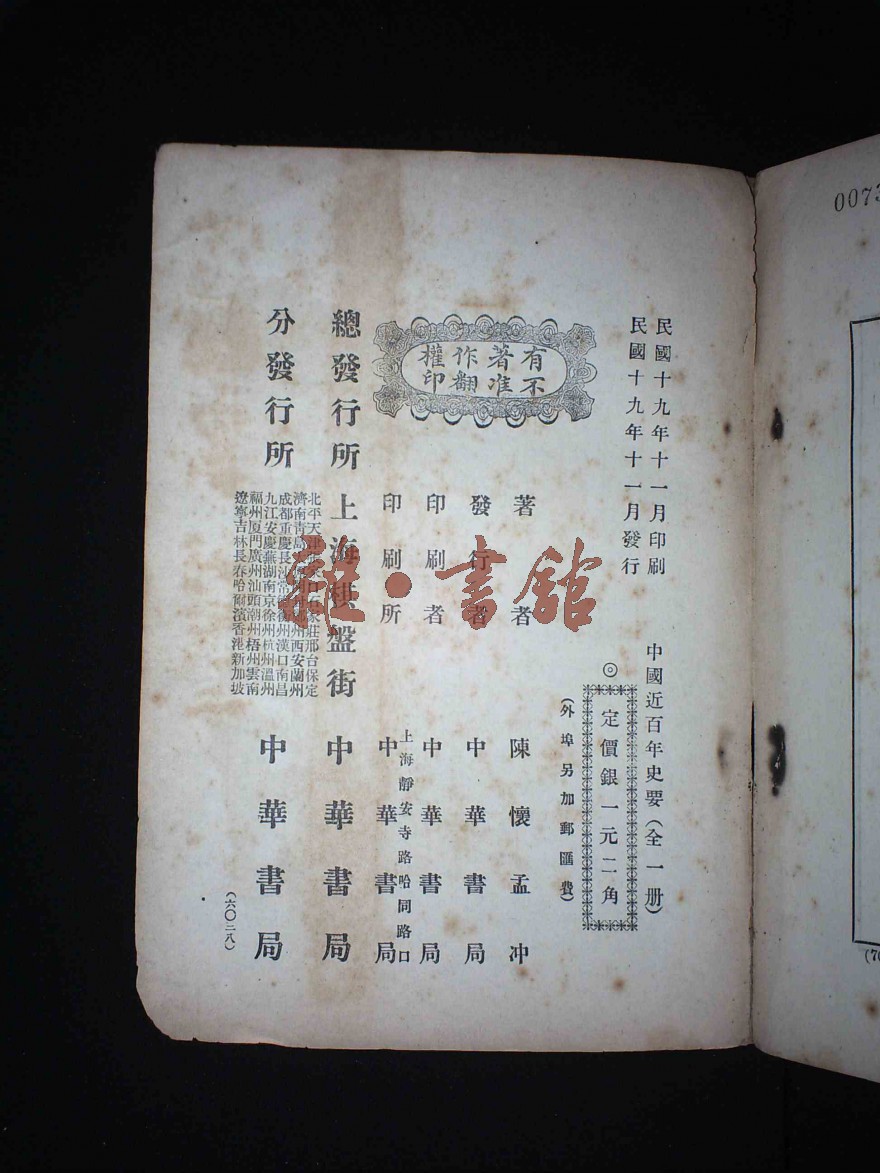 民國十九年十一月印刷
民國十九年十一月發行
中國近百年史要（全一册）
◎定價銀一元二角
（外埠另加郵匯費）
有著作權
不准翻印
著者 陳懷孟冲
發行者 中華書局
印刷者 中華書局
上海靜安寺路哈同路口
印刷所 中華書局
總發行所 上海棋盤街 中華書局
分發行所
北平天津 石家莊邢台保定
濟南青島 州西安蘭州
成都重慶長沙常 衡州漢口南昌
九江安慶蕪湖南京徐州杭州溫州
福州厦門廣州汕頭潮州梧州雲南
遼寧吉林長春哈爾濱香港新加坡
中華書局
（六〇二八）
雜·書館
0073
(70